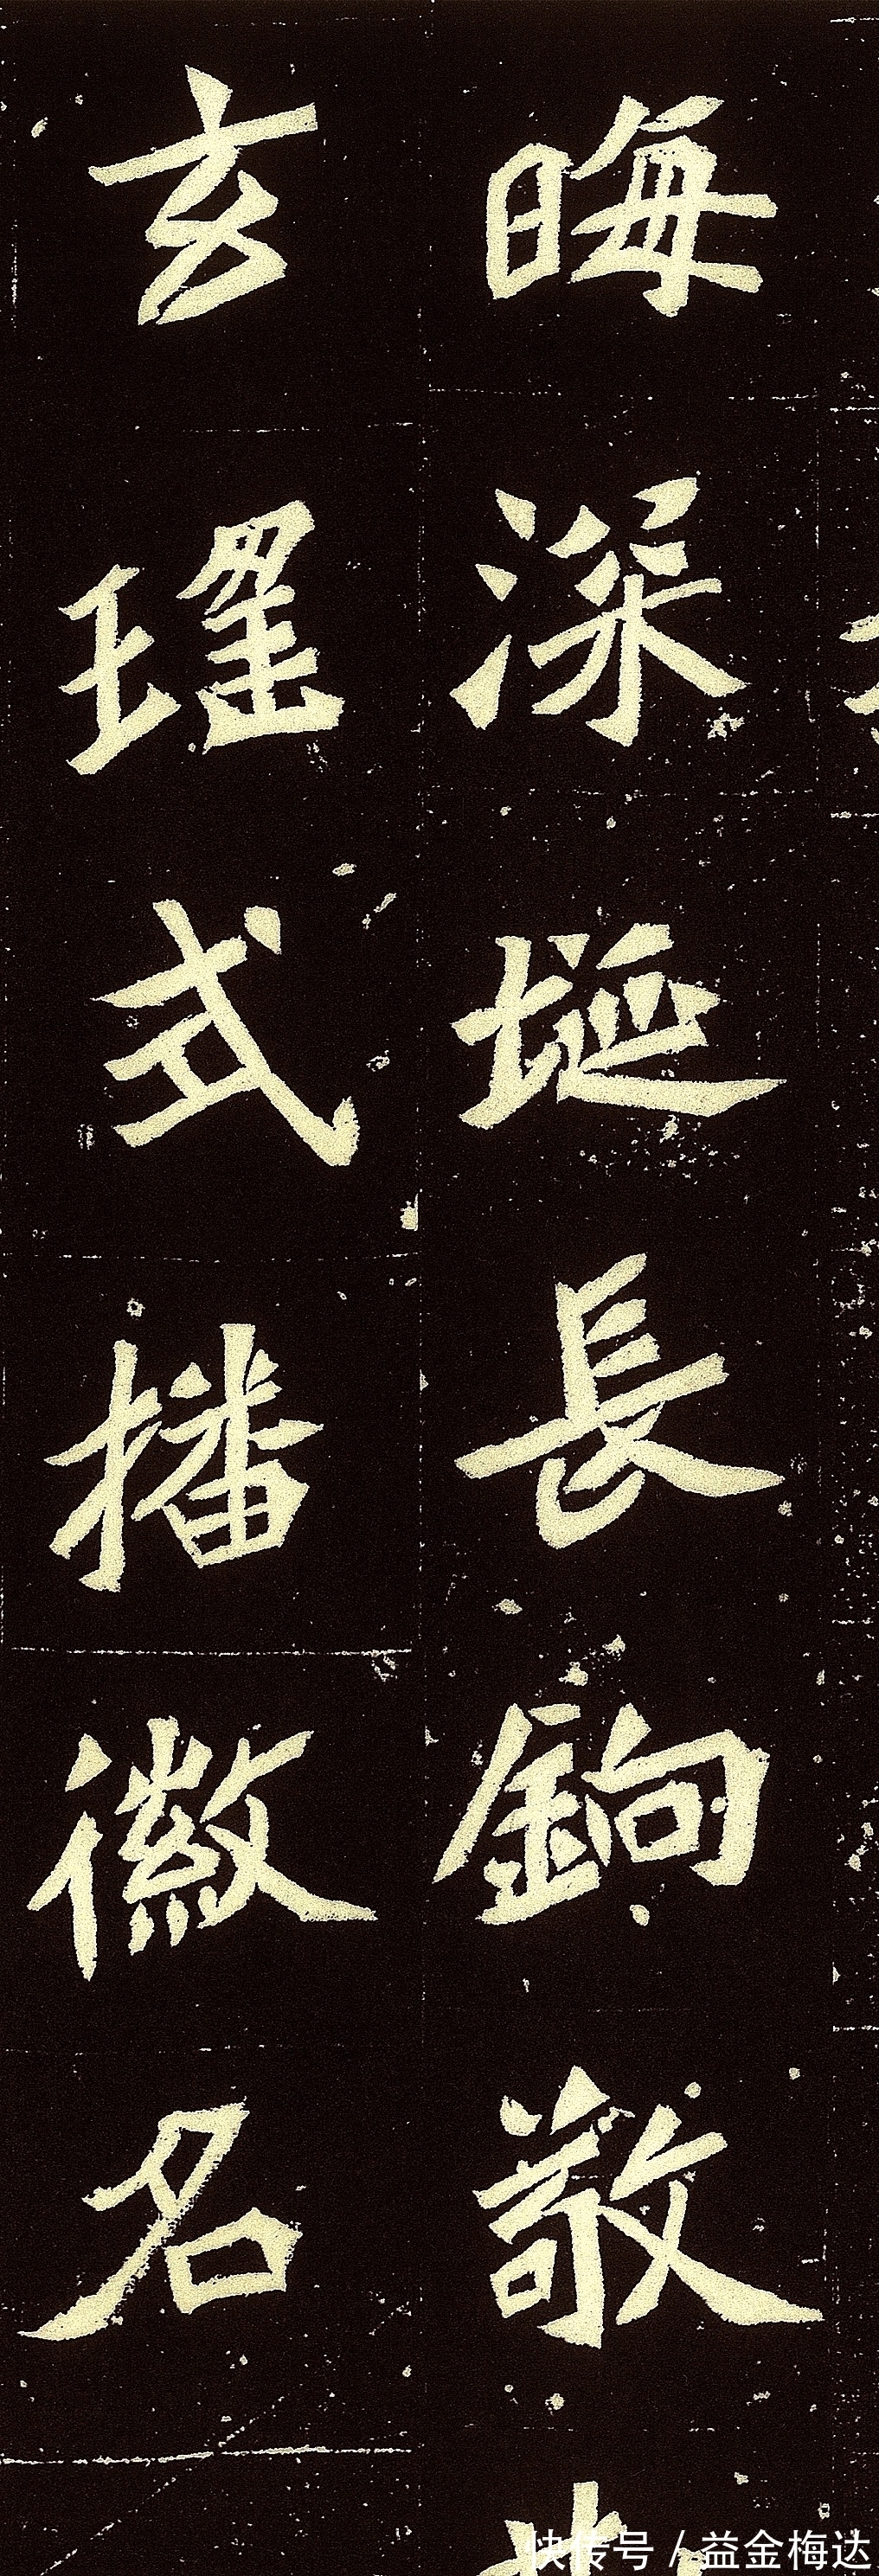 晦深埏長銁敬
玄瑤式播徽名
快传号 / 益金梅达